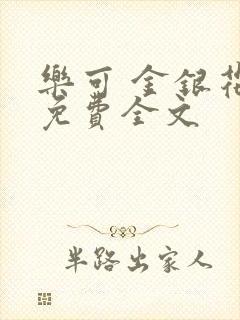 樂可 金銀花
免費全文
半路出家人